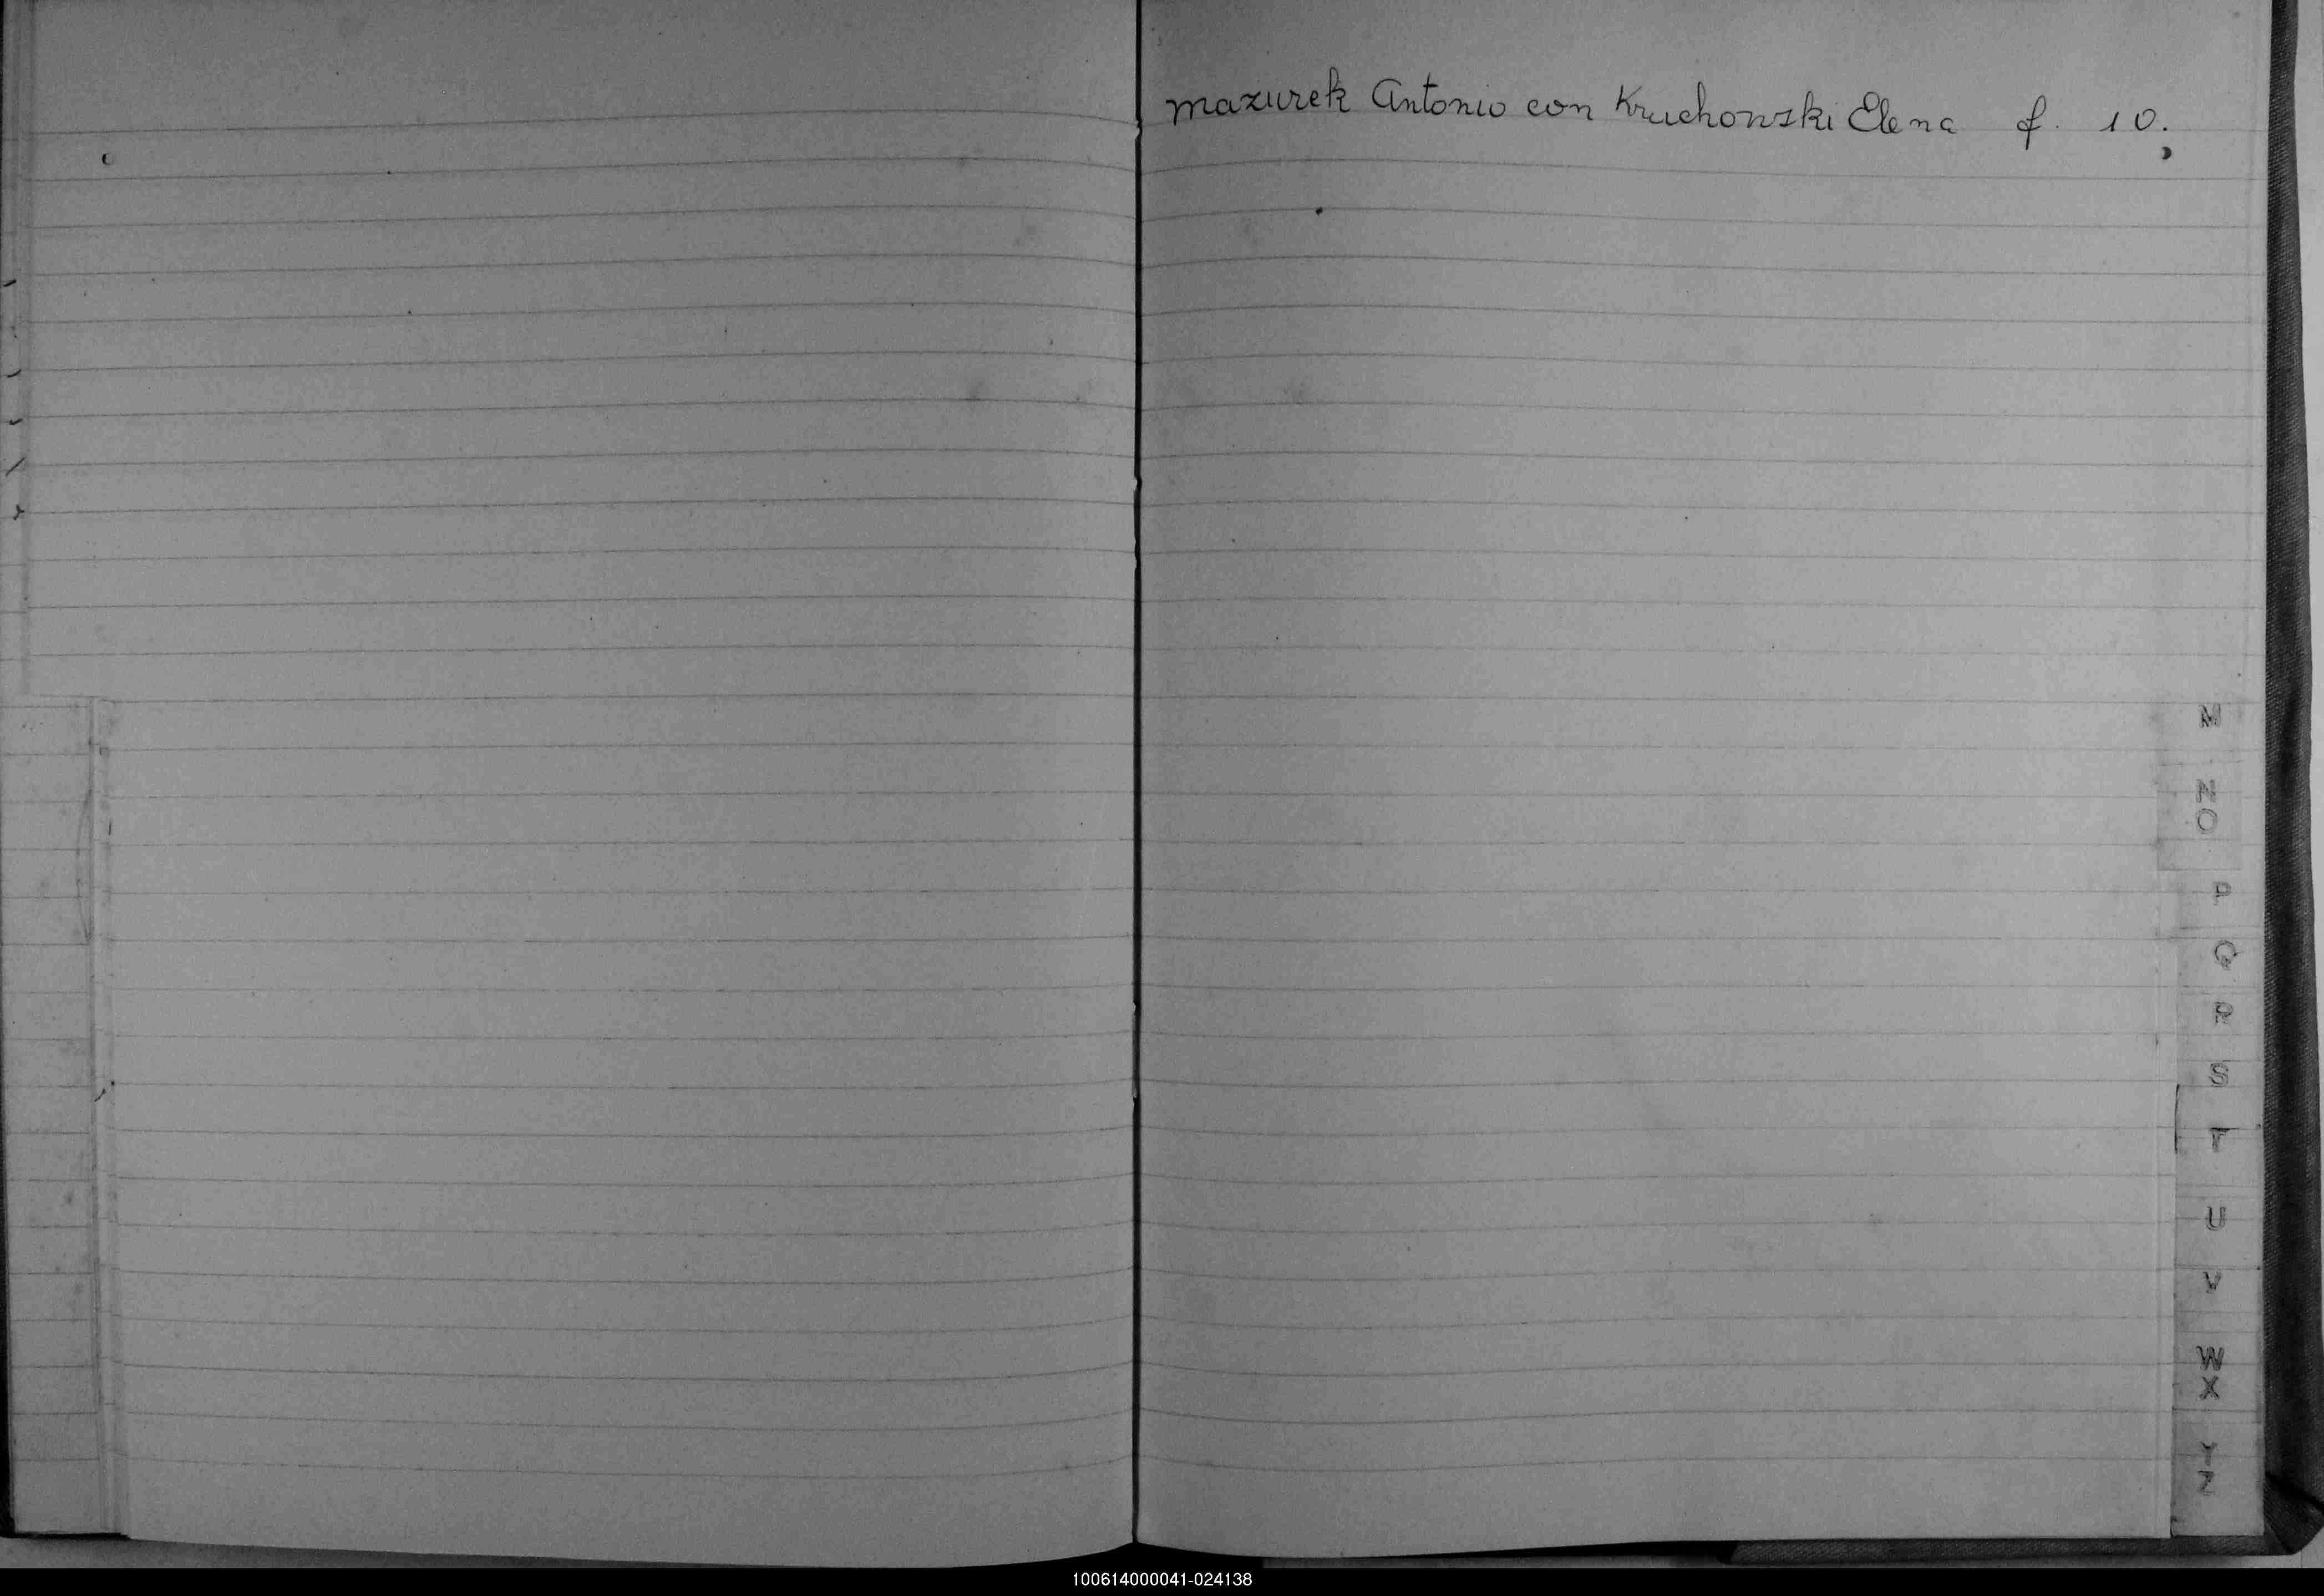 Mazurek Antonio con Kruchowski Elena f. 10.
M
N
O
P
Q
R
S
T
U
V
W
X
Y
Z
100614000041-024138